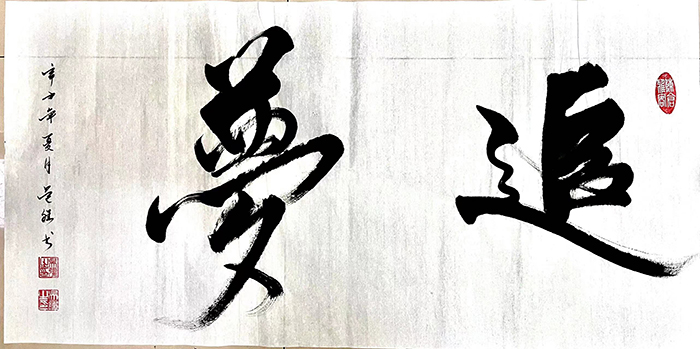 追夢
辛丑年夏月
書